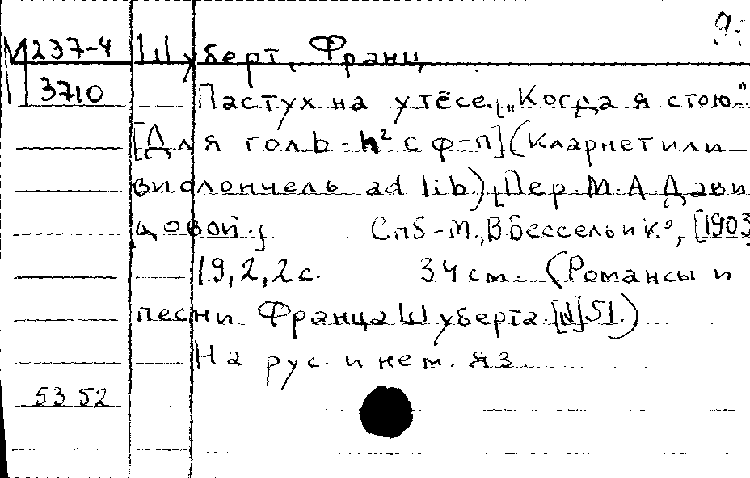 М237-4 Шуберт, Франц
3710 Пастух на утёсе. [„Когда я стою"
[Для гол b-h² с ф-п] (Кларнет или
виолончель ad lib). [Пер. М. А. Дави
довой.] Спб-М., В. Бессель и К°, [1903
19, 2, 2 с. 34 см. (Романсы и
песни Франца Шуберта. [№] 51.)
На рус. и нем. яз.
53 52